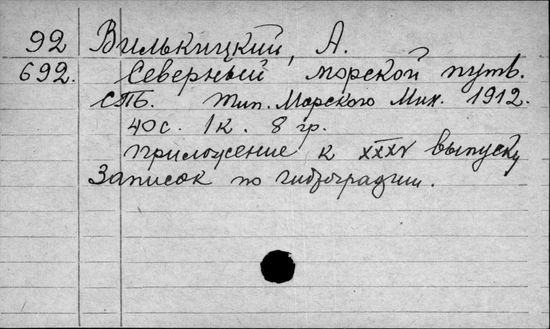 92 Вилькицкий, А.
692. Северный морской путь.
СПб. Тип. Морского Мин. 1912.
40 с. 1 к. 8 гр.
Приложение к XXXV выпуску
Записок по гидрографии.